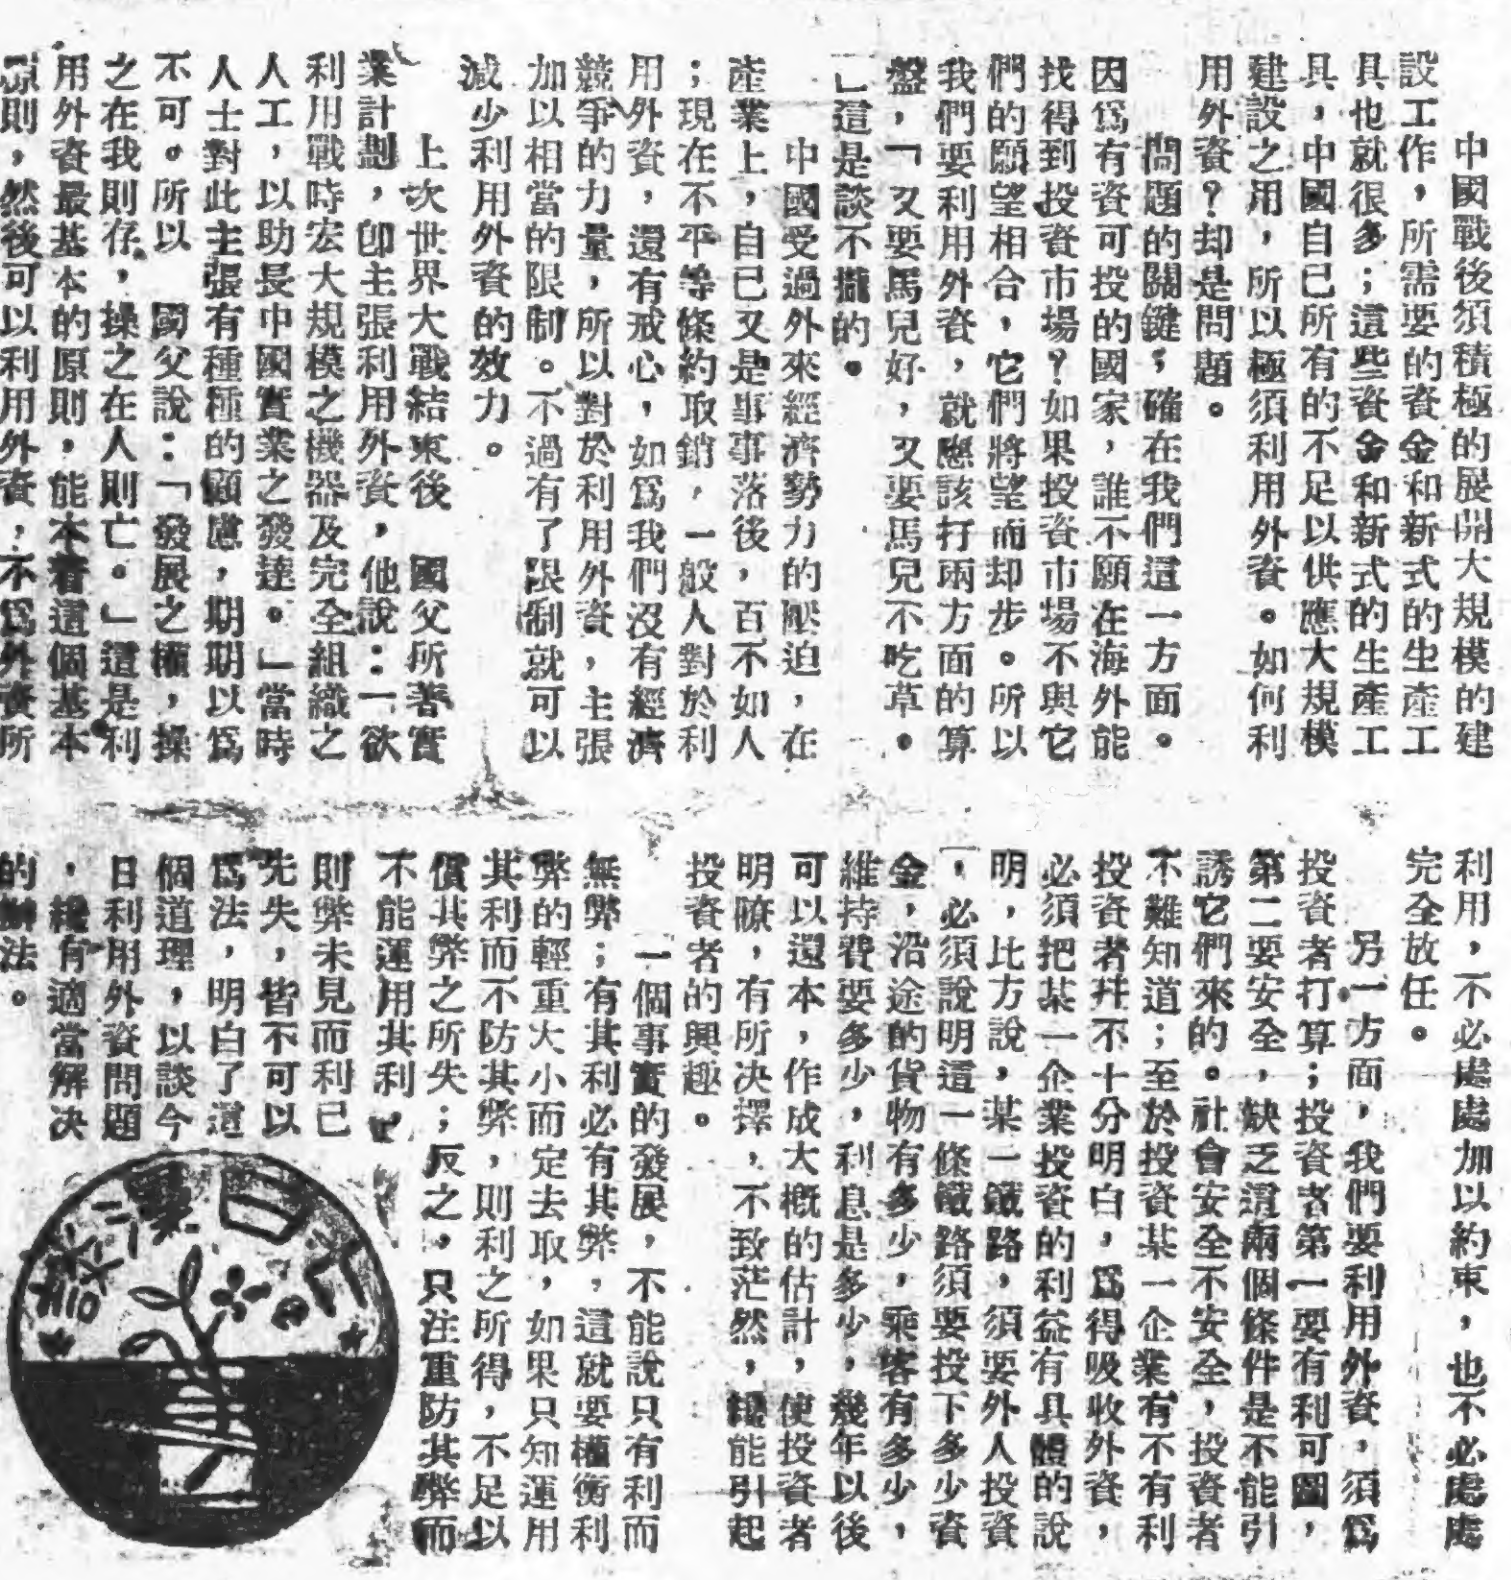 中國戰後須積極的展開大規模的建
設工作，所需要的資金和新式的生產工
具也就很多；這些資金和新式的生產工
具，中國自己所有的不足以供應大規模
建設之用，所以極須利用外資。如何利
用外資？却是問題。
問題的關鍵；確在我們這一方面。
因爲有資可投的國家，誰不願在海外能
找得到投資市場？如果投資市場不與它
們的願望相合，它們將望而却步。所以
我們要利用外資，就應該打兩方面的算
盤，「又要馬兒好，又要馬兒不吃草。
」這是談不攏的。
中國受過外來經濟勢力的壓迫，在
產業上，自己又是事事落後，百不如人
；現在不平等條約取銷，一般人對於利
用外資，還有戒心，如爲我們沒有經濟
競爭的力量，所以對於利用外資，主張
加以相當的限制。不過有了限制就可以
減少利用外資的效力。
上次世界大戰結束後　國父所著實
業計劃，卽主張利用外資，他說：「欲
利用戰時宏大規模之機器及完全組織之
人工，以助長中國實業之發達。」當時
人士對此主張有種種的顧慮，期期以爲
不可。所以　國父說：「發展之權，操
之在我則存，操之在人則亡。」這是利
用外資最基本的原則，能本着這個基本
原則，然後可以利用外資，不爲外資所
利用，不必處處加以約束，也不必處處
完全放任。
另一方面，我們要利用外資，須爲
投資者打算；投資者第一要有利可圖，
第二要安全，缺乏這兩個條件是不能引
誘它們來的。社會安全不安全，投資者
不難知道；至於投資某一企業有不有利
投資者幷不十分明白，爲得吸收外資，
必須把某一企業投資的利益有具體的說
明，比方說，某一鐵路，須要外人投資
，必須說明這一條鐵路須要投下多少資
金，沿途的貨物有多少，乘客有多少，
維持費要多少，利息是多少，幾年以後
可以還本，作成大概的估計，使投資者
明瞭，有所決擇，不致茫然，纔能引起
投資者的興趣。
一個事實的發展，不能說只有利而
無弊；有其利必有其弊，這就要權衡利
弊的輕重大小而定去取，如果只知運用
其利而不防其弊，則利之所得，不足以
償其弊之所失；反之，只注重防其弊而
不能運用其利，
則弊未見而利已
先失，皆不可以
爲法，明白了這
個道理，以談今
日利用外資問題
，纔有適當解決
的辦法。